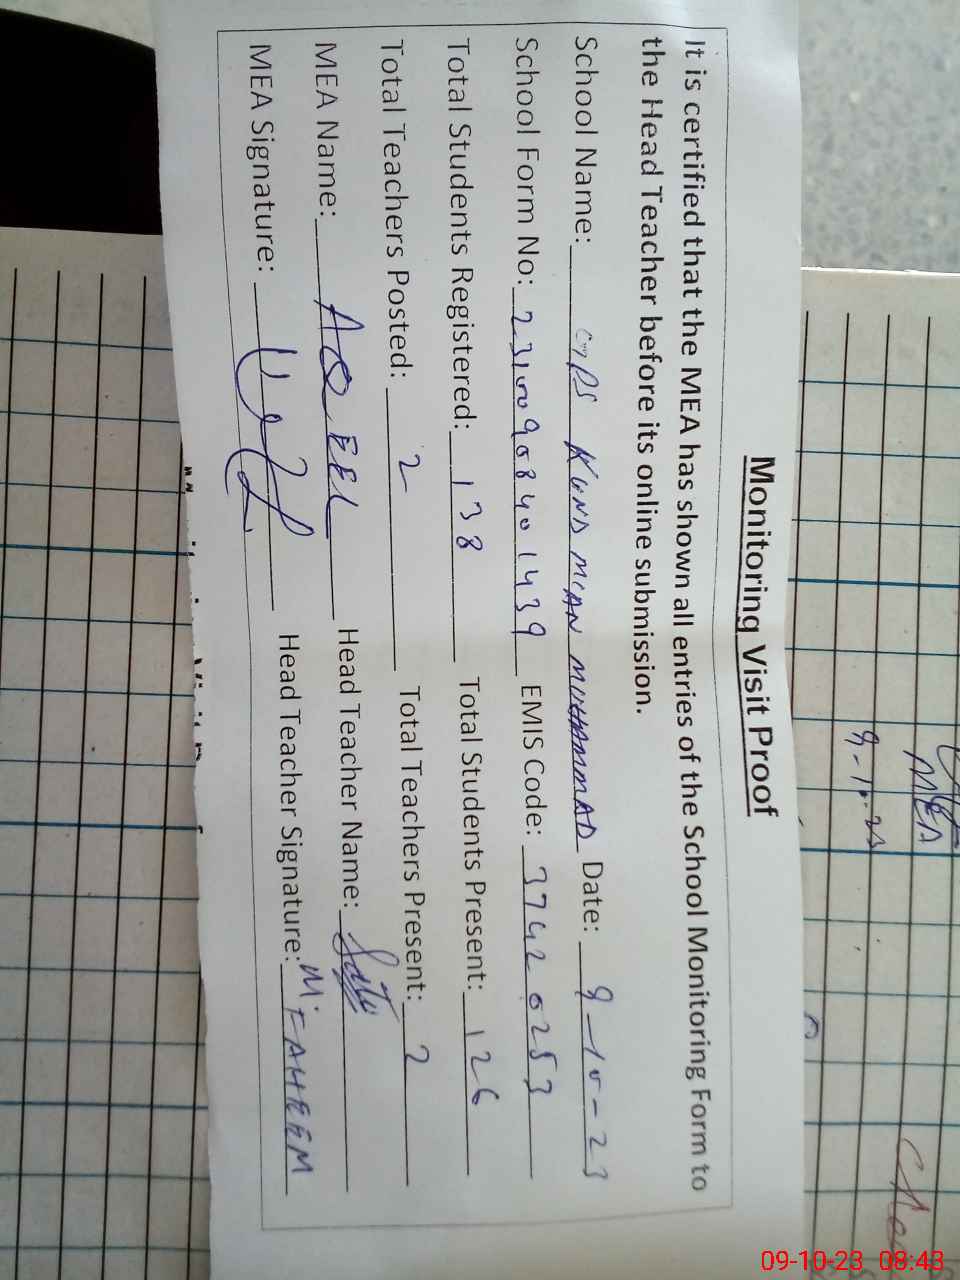 Monitoring Visit Proof
It is certified that the MEA has shown all entries of the School Monitoring Form to
the Head Teacher before its online submission.
School Name: GPS KUND MIAN MUHAMMAD Date: 9-10-23
School Form No: 23100908401439 EMIS Code: 37420253
Total Students Registered: 138 Total Students Present: 126
Total Teachers Posted: 2 Total Teachers Present: 2
MEA Name: AQEEL Head Teacher Name:
MEA Signature: Head Teacher Signature: M. FAHEEM
MEA
9-10-23
09-10-23 08:43